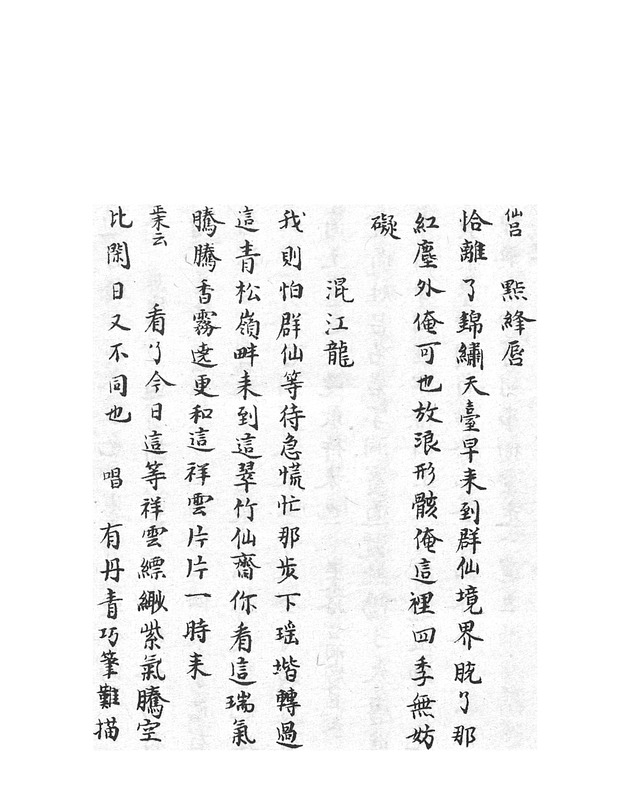 仙呂　點絳唇
恰離了錦繡天臺早来到群仙境界脫了那
紅塵外俺可也放浪形骸俺這裡四季無妨
礙
混江龍
我則怕群仙等待急慌忙那步下瑶堦轉過
這青松嶺畔来到這翠竹仙齋你看這瑞氣
騰騰香霧遶更和這祥雲片片一時来
云　看了今日這等祥雲縹緲紫氣騰空
比閑日又不同也　唱　有丹青巧筆難描